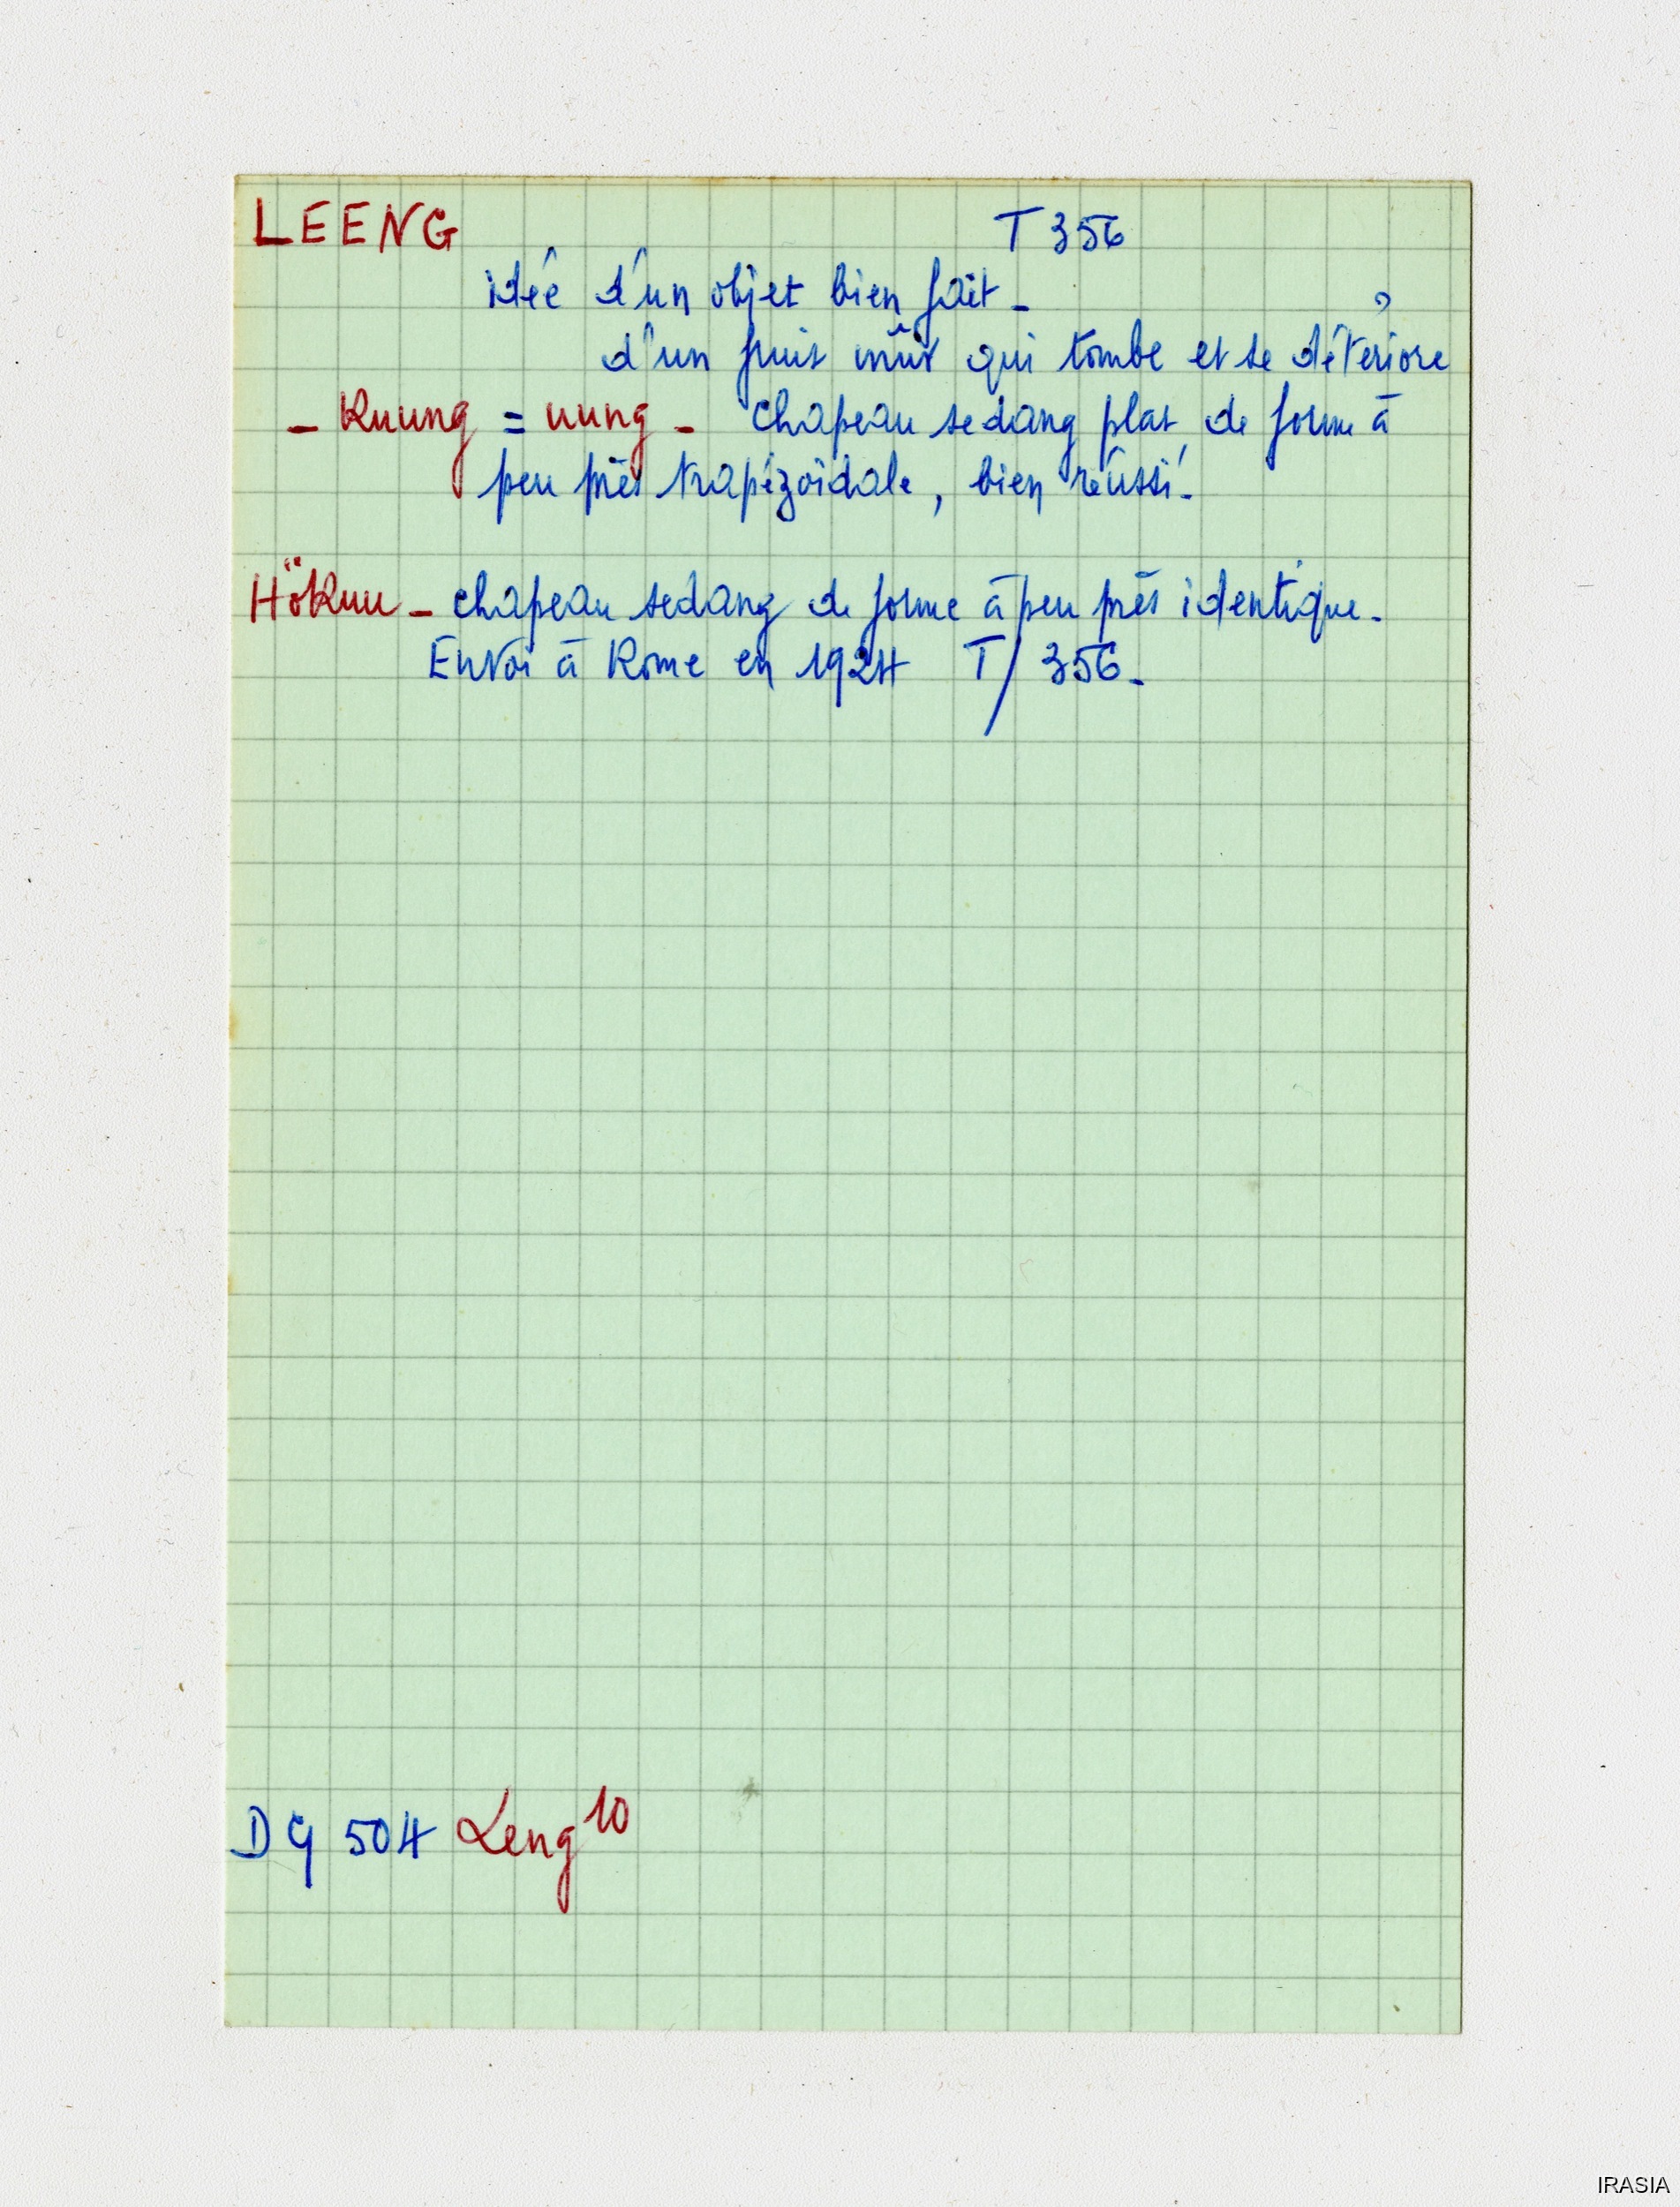 LEENG T 356
idée d'un objet bien fait - ?
d'un fruit mûr qui tombe et se déteriore
- Kuung = uung - chapeau sedang plat, de forme à
peu près trapézoïdale, bien réussi.
Hökuu - chapeau sedang de forme à peu près identique.
Envoi à Rome en 1924 T/ 356.
DG 504 Leng 10
IRASIA